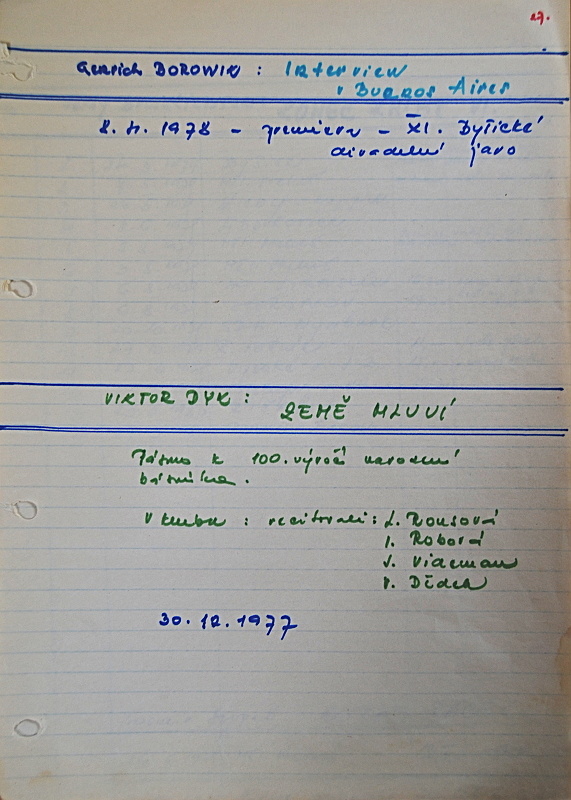 27.
GENRICH BOROWIK : Interview
v BUENOS Aires
8. 4. 1978 - premiera - XI. Bytické
divadelní jaro
VIKTOR DYK : ZEMĚ MLUVÍ
Pásmo k 100. výročí narození
básníka.
V klubu : recitovali : L. Rousová
I. Robová
J. Videman
V. Dědek
30. 12. 1977